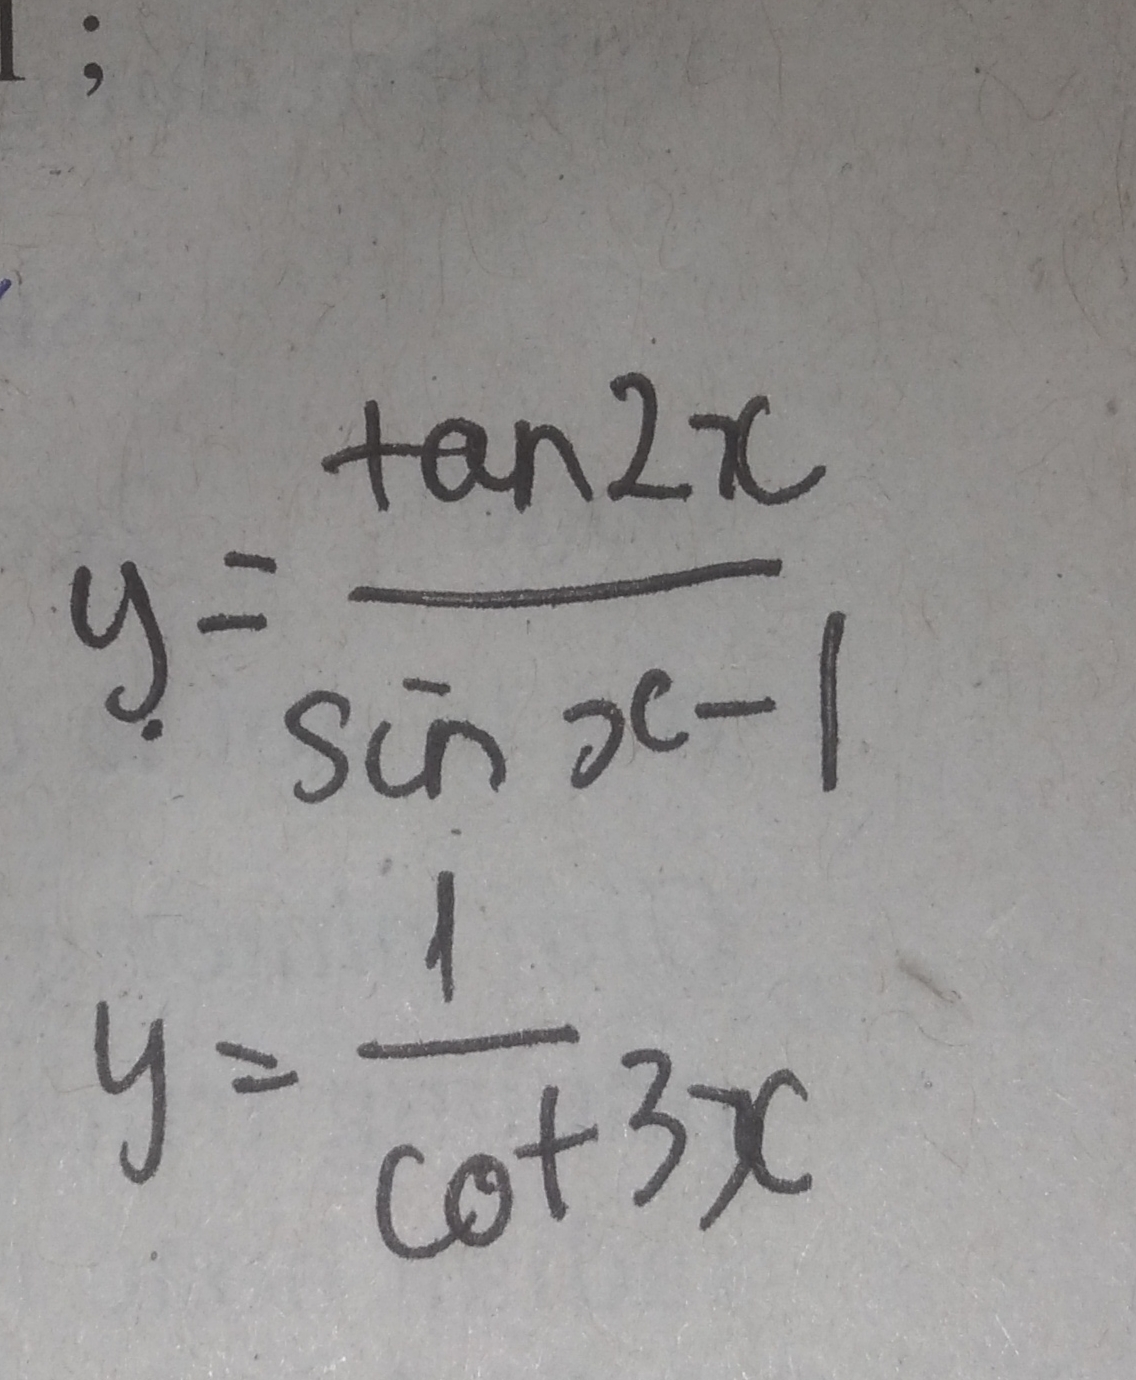 ;
y = tan2x / sin x - 1
y = 1 / cot 3x